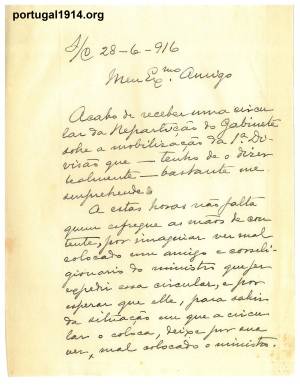 portugal1914.org
S/C 28-6-916
Meu Exmo. Amigo
Acabo de receber uma circu-
lar da Repartição do Gabinete
sobre a mobilização da 1ª Di-
visão que — tenho de o dizer
lealmente — bastante me
surprehendeu
A estas horas não falta
quem esfregue as mãos de con-
tente, por imaginar ver mal
colocado um amigo e correli-
gionario do ministro que
expedir essa circular, e por
esperar que elle, para sahir
da situação em que a circu-
lar o coloca, deixe por sua
vez, mal colocado o ministro.